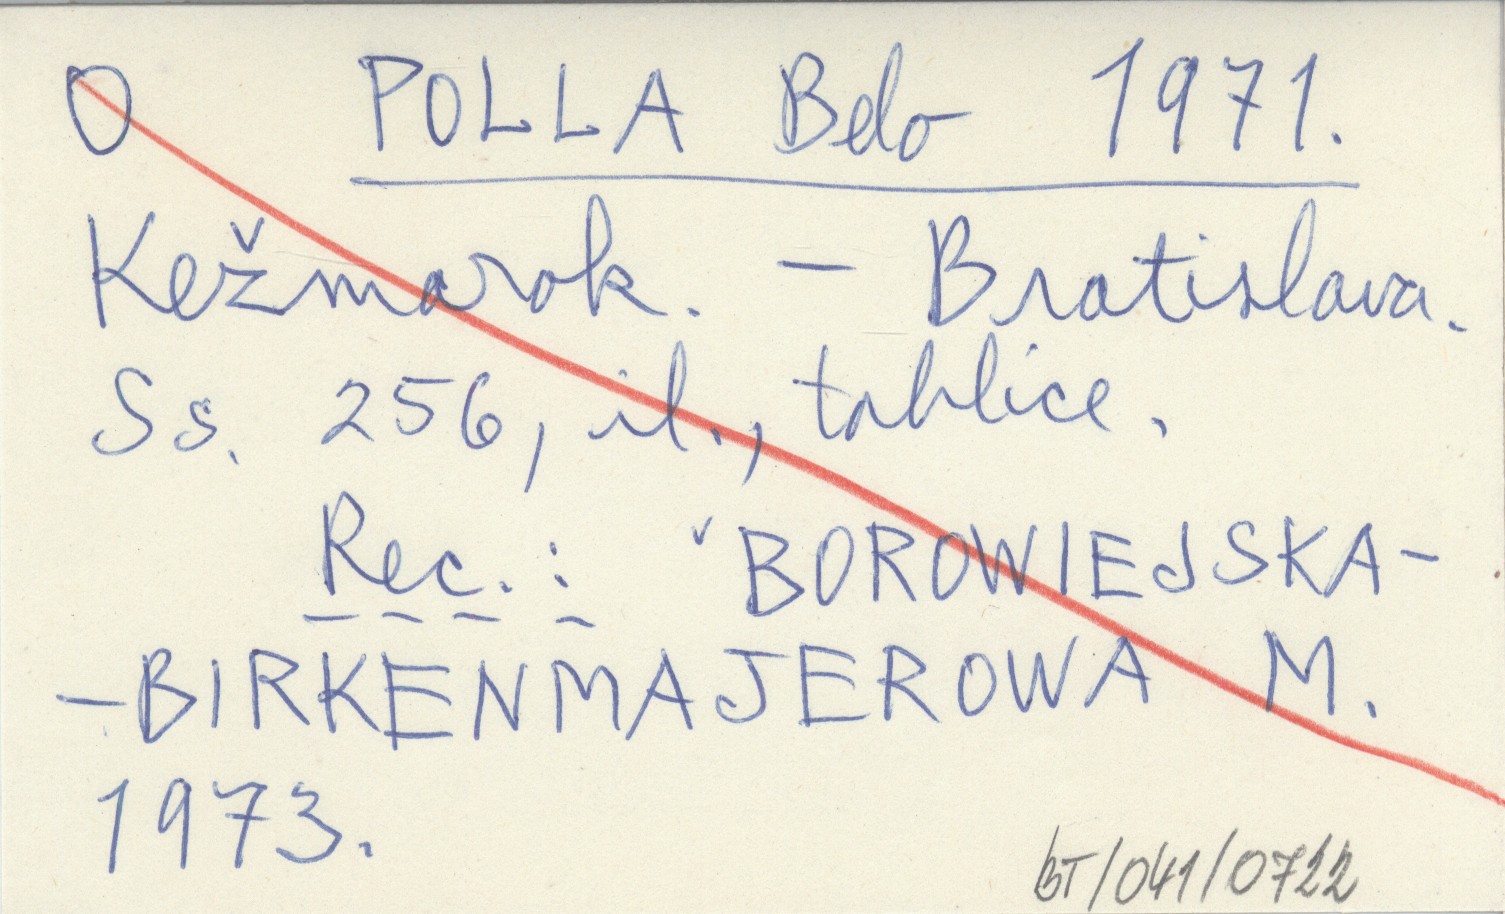 O POLLA Belo 1971.
Kežmarok. – Bratislava.
Ss. 256, il., tablice.
Rec.: BOROWIEJSKA-
-BIRKENMAJEROWA M.
1973.
BT/041/0722